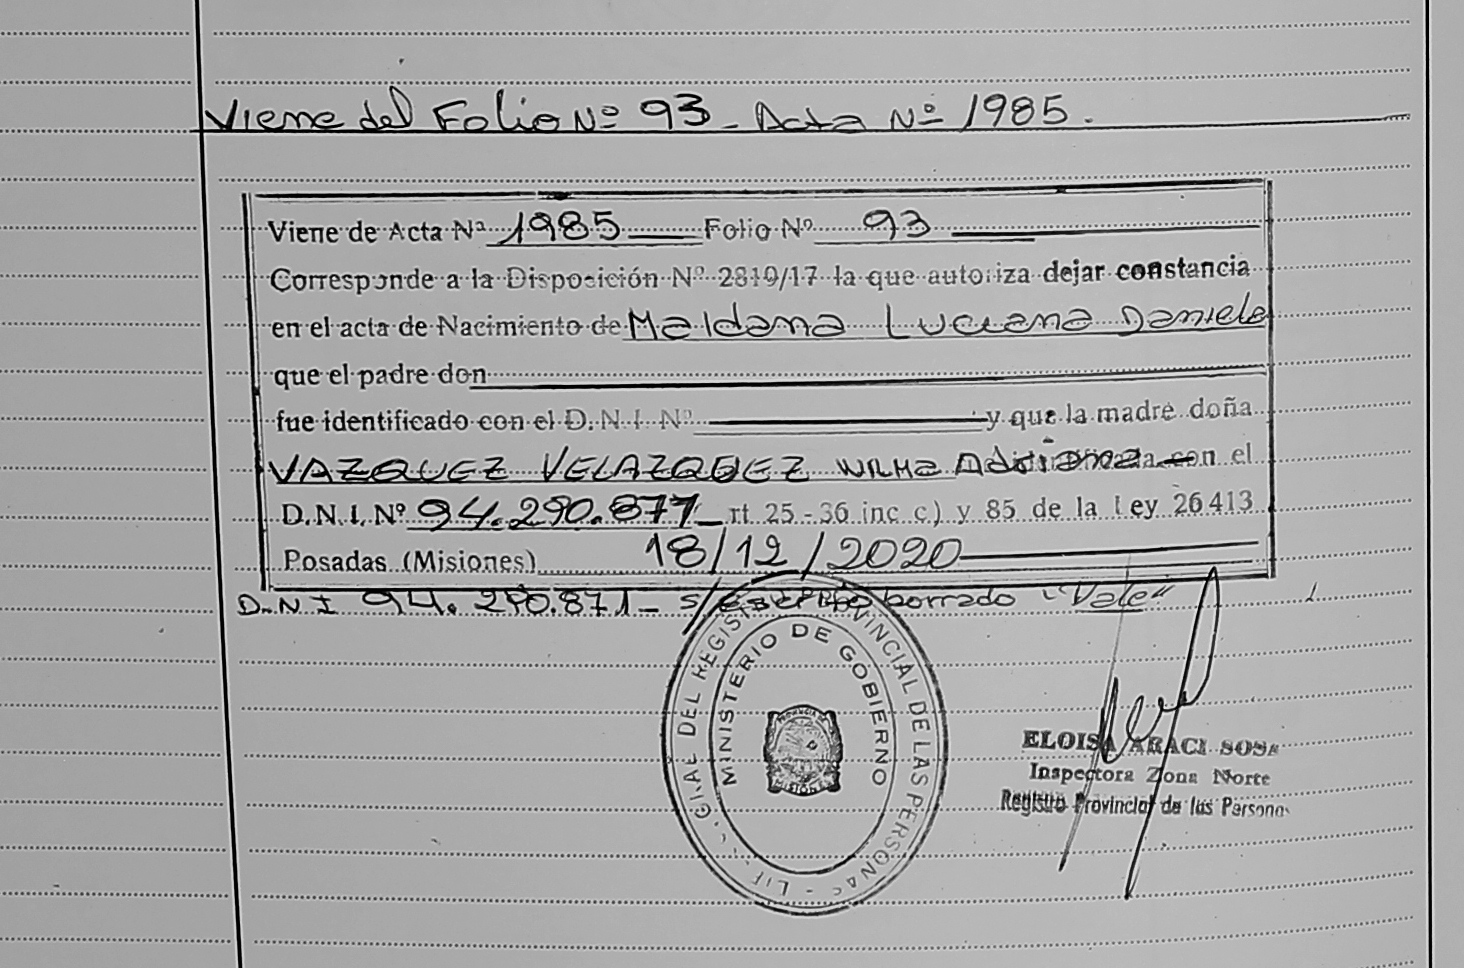 Viene del Folio Nº 93 - Acta Nº 1985.
Viene de Acta Nº 1985 Folio Nº 93
Corresponde a la Disposición Nº 2819/17 la que autoriza dejar constancia
en el acta de Nacimiento de Maldana Luciana Daniela
que el padre don
fue identificado con el D.N.I. Nº y que la madre doña
VAZQUEZ VELAZQUEZ WILMA Adriana con el
D.N.I. Nº 94.290.871 rt 25-36 inc c.) y 85 de la Ley 26413
Posadas (Misiones) 18/12/2020
D.N.I 94.290.871 - s/ borrado "Vale"
DEL REGISTRO PROVINCIAL DE LAS PERSONAS
MINISTERIO DE GOBIERNO
PROVINCIA DE
MISIONES
ELOISA ARACI SOSA
Inspectora Zona Norte
Registro Provincial de las Personas